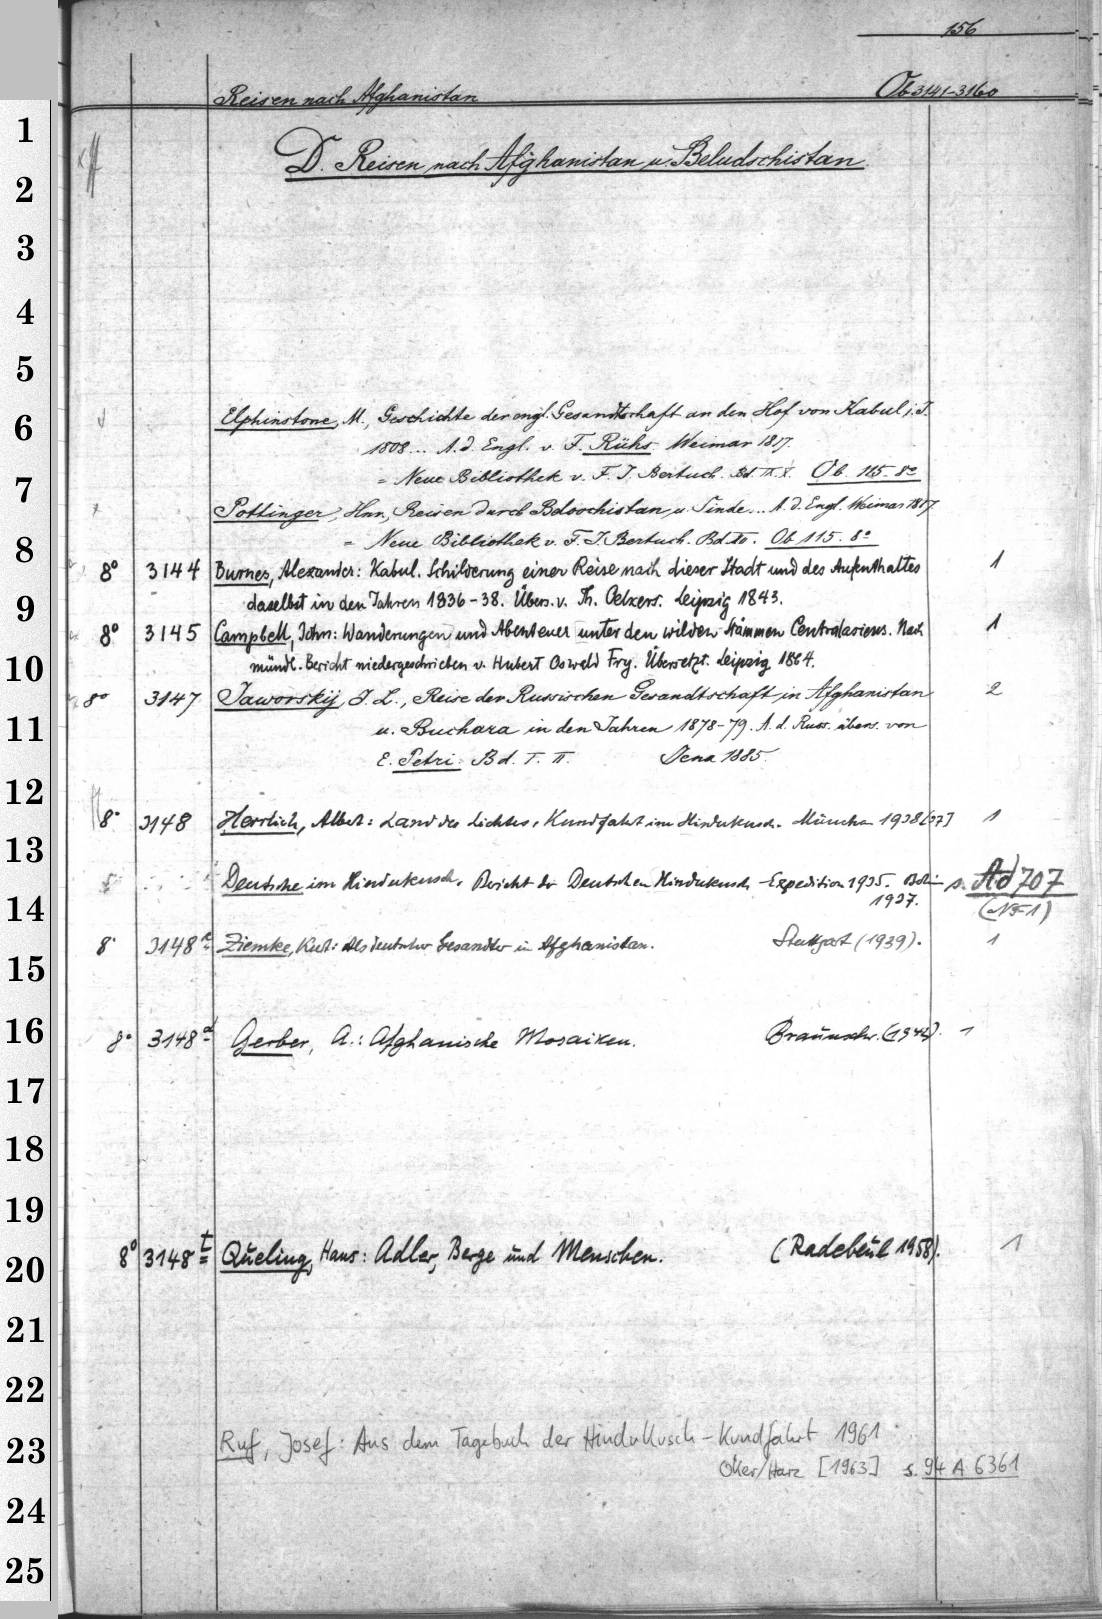 156
Reisen nach Afghanistan Ob 3141-3160
D. Reisen nach Afghanistan u. Beludschistan.
1
2
3
4
5
6
7
8
9
10
11
12
13
14
15
16
17
18
19
20
21
22
23
24
25
Elphinstone, M., Geschichte der engl. Gesandtschaft an den Hof von Kabul i. J.
1808... A. d. Engl. v. F. Rühs. Weimar 1817.
= Neue Bibliothek v. F. J. Bertuch. Bd. IX. X. Ob. 115. 8º
Pottinger, Hnr., Reisen durch Beloochistan u. Sinde... A. d. Engl. Weimar 1817
= Neue Bibliothek v. F. J. Bertuch. Bd. Ob 115. 8º
8º 3144 Burnes, Alexander: Kabul. Schilderung einer Reise nach dieser Stadt und des Aufenthaltes 1
daselbst in den Jahren 1836-38. Übers. v. Th. Oelkers. Leipzig 1843.
8º 3145 Campbell, John: Wanderungen und Abenteuer unter den wilden Stämmen Centralasiens. Nach 1
mündl. Bericht niedergeschrieben v. Hubert Oswald Fry. Übersetzt. Leipzig 1864.
8º 3147 Jaworskij, J. L., Reise der Russischen Gesandtschaft in Afghanistan 2
u. Buchara in den Jahren 1878-79. A. d. Russ. übers. von
E. Petri. Bd. I. II. Jena 1885.
8º 3148 Herrlich, Albert: Land des Lichtes, Kundfahrt im Hindukusch. München 1938 [37] 1
Deutsche im Hindukusch. Bericht der Deutschen Hindukusch-Expedition 1935. Berlin s. Ad 707
1937. (NF 1)
8º 3148 a Ziemke, Kurt: Als deutscher Gesandter in Afghanistan. Stuttgart (1939). 1
8º 3148 d Gerber, A.: Afghanische Mosaiken. Braunschw. (1942). 1
8º 3148 t Queling, Hans: Adler, Berge und Menschen. (Radebeul 1958). 1
Ruf, Josef: Aus dem Tagebuch der Hindukusch-Kundfahrt 1961
Oker/Harz [1963] s. 94 A 6361